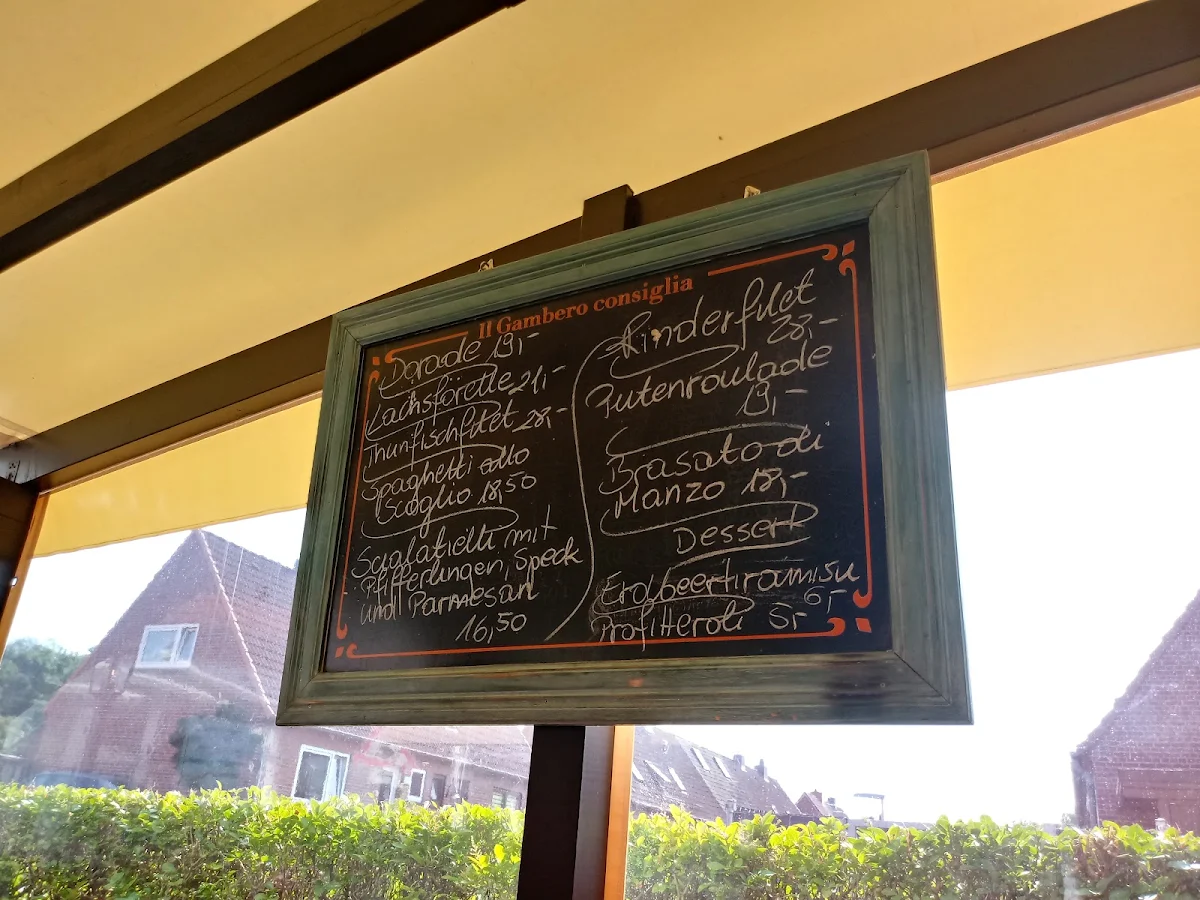 Il Gambero consiglia
Dorade 19,-
Lachsforelle 21,-
Thunfischfilet 28,-
Spaghetti allo
Scoglio 18,50
mit
Pfifferlingen, Speck
und Parmesan
16,50
Rinderfilet
28,-
Putenroulade
19,-
Brasato di
Manzo 18,-
Dessert
Erdbeertiramisu
6,-
Profitteroli 5,-